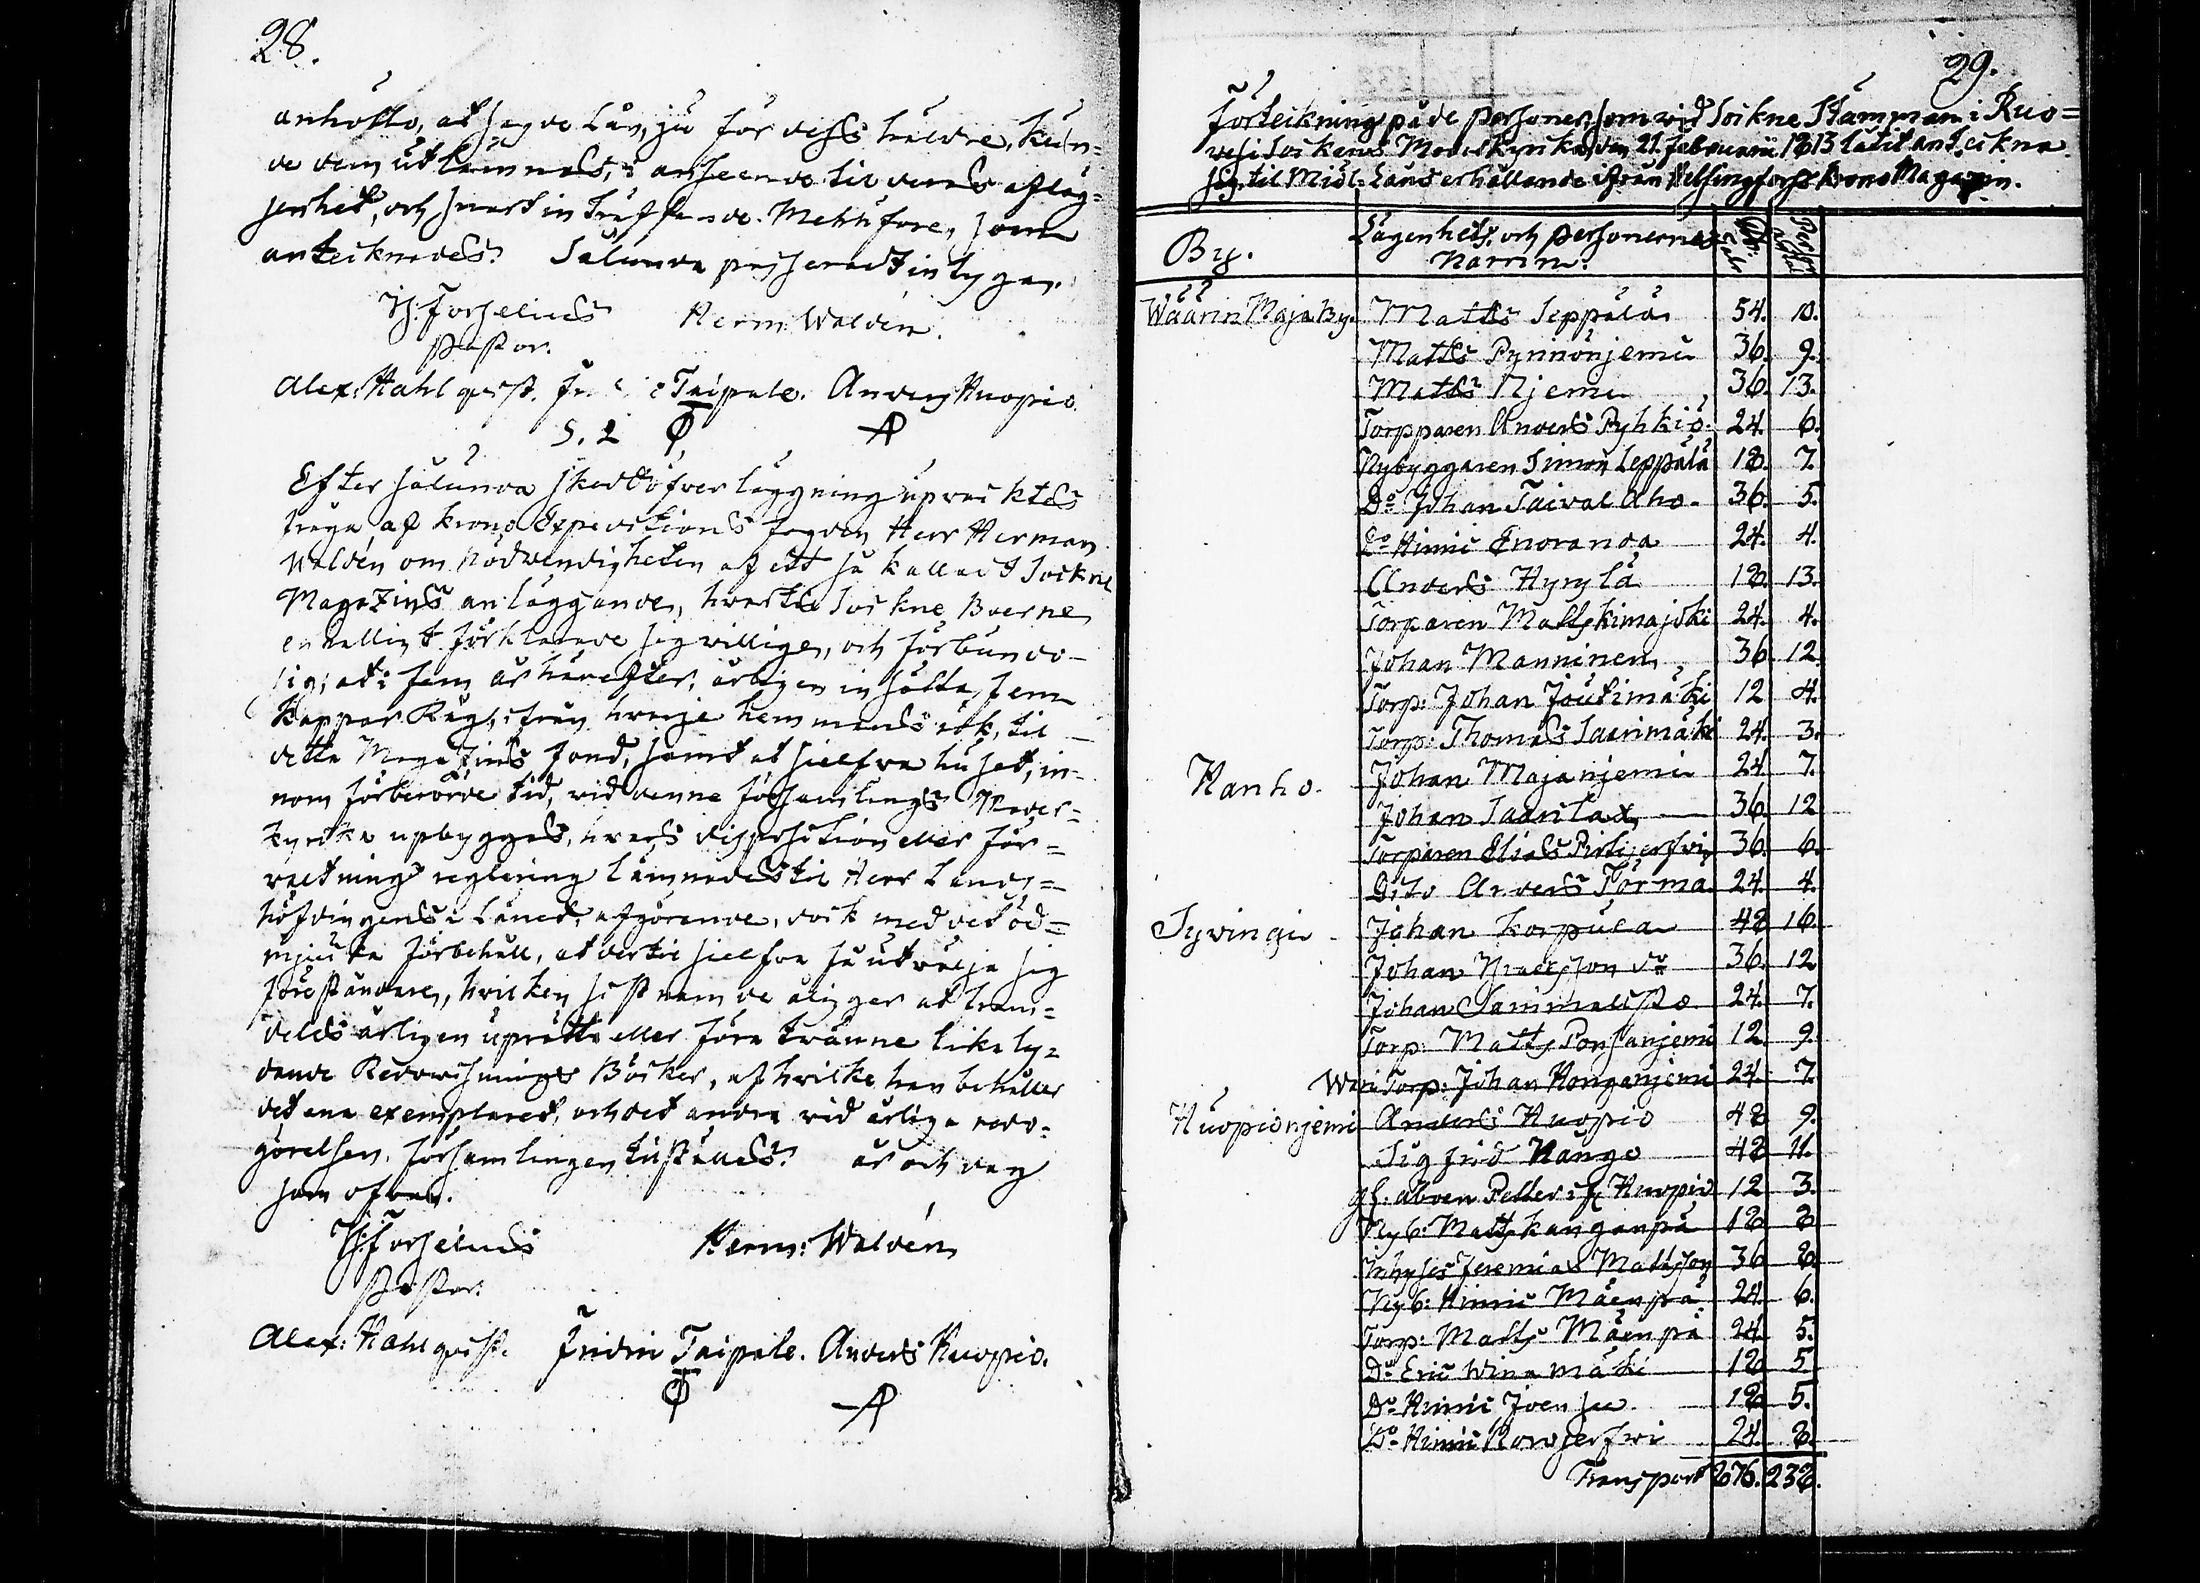 28.
anhölto, at sagde Lån, ju för dess heldre, kun=
de dem utlemnas, i anseende til deras afläg=
senhet, och snart inträffande Mehnföre, som
antecknades. Sålunda passeradt intygar.
Hj: Forselius Herm: Waldén.
Pastor.
Alex: Hahlqvist. Taipale. Anders Huopio
§. 2
Efter sålunda skedd öfverläggning upväcktes
fråga af krono Expeditions fogden Herr Herman
Waldén om nödvendigheten af ett så kalladt Sockne
Magazins anläggande, hvartil Sockne Boerne
enhälligt förklarade sig villige, och förbundo
sig, at i fem år härefter, årligen insätta, fem
Kappar Råg, ifrån hvarje hemmans rök, til
detta Magazins fond, samt at sielfva huset, in-
nom förberörde tid, vid denne församlings Moder=
kyrka upbygges, hvars disposition eller för=
valtnings reglering lämnades til Herr Lands=
höfdingens i Länet, afgörande, dock med det öd=
mjuka förbehåll, at dertil sielfva få utvälja sig
föreståndare, hvilken sistnämde åligger at fram=
deles årligen uprätta eller föra tvänne lika ly=
dande Redovisnings Böcker, af hvilka han behåller
det ena exemplaret, och det andra vid årliga redo-
görelsen, församlingen tilställes. År och dag
som ofvan.
Hj: Forselius Herm: Waldén
Pastor.
Alex: Hahlqvist. Fridric Taipale. Anders Huopio.
29.
Förteckning på de Personer, som wid Sockne Stämman i Ruo=
vesi Sockens Moderkyrka, den 21 Februarii 1813 låtit anteckna
sig, til Mjöl Låns erhållande ifrån Helsingfors krono Magazin.
By. Lägenhets, och Personernes Namn.
Wäärin Maja By. Matts Seppälä 54. 10.
Matts Pynnönjemi 36. 9.
Matts Njemi 36. 13.
Torpparen Anders Pyhkiö 24. 6.
Nybyggaren Simon Leppälä 18. 7.
Do Johan Taival Aho 36 5.
Do Hinric Enoranda 24. 4.
Anders Hyrylä 18. 13.
Torparen Matts kimajoki 24. 4.
Johan Manninen 36. 12
Torp: Johan Joutimäki 12 4.
Torp: Thomas Saarimäki 24. 3.
Hanho. Johan Majanjemi 24 7.
Johan Saarilax 36. 12
Torparen Elias Pirtijerfvi 36. 6.
Dito Anders Törmä 24. 4.
Syvingi Johan Korpula 48 16.
Johan Isacsson do 36. 12
Johan Sammalisto 24. 7.
Torp: Matts Ponsanjemi 12. 9.
Torp: Johan Honganjemi 24. 7.
Huopionjemi Anders Huopio 48 9.
Sigfrid Kango 48 11.
Petter Huopio 12 3.
Nyb: Matts kanganpä 18 8
Inhyses Jeremias Mattsson 36 8
Nyb: Hinric Mäenpä 24. 6.
Torp: Matts Mäenpä 24. 5.
Do Eric Winamäki 18 5
Do Hinric Joensu 18 5.
Do Hinric Rovojerfvi 24. 8.
Transport 876. 238.